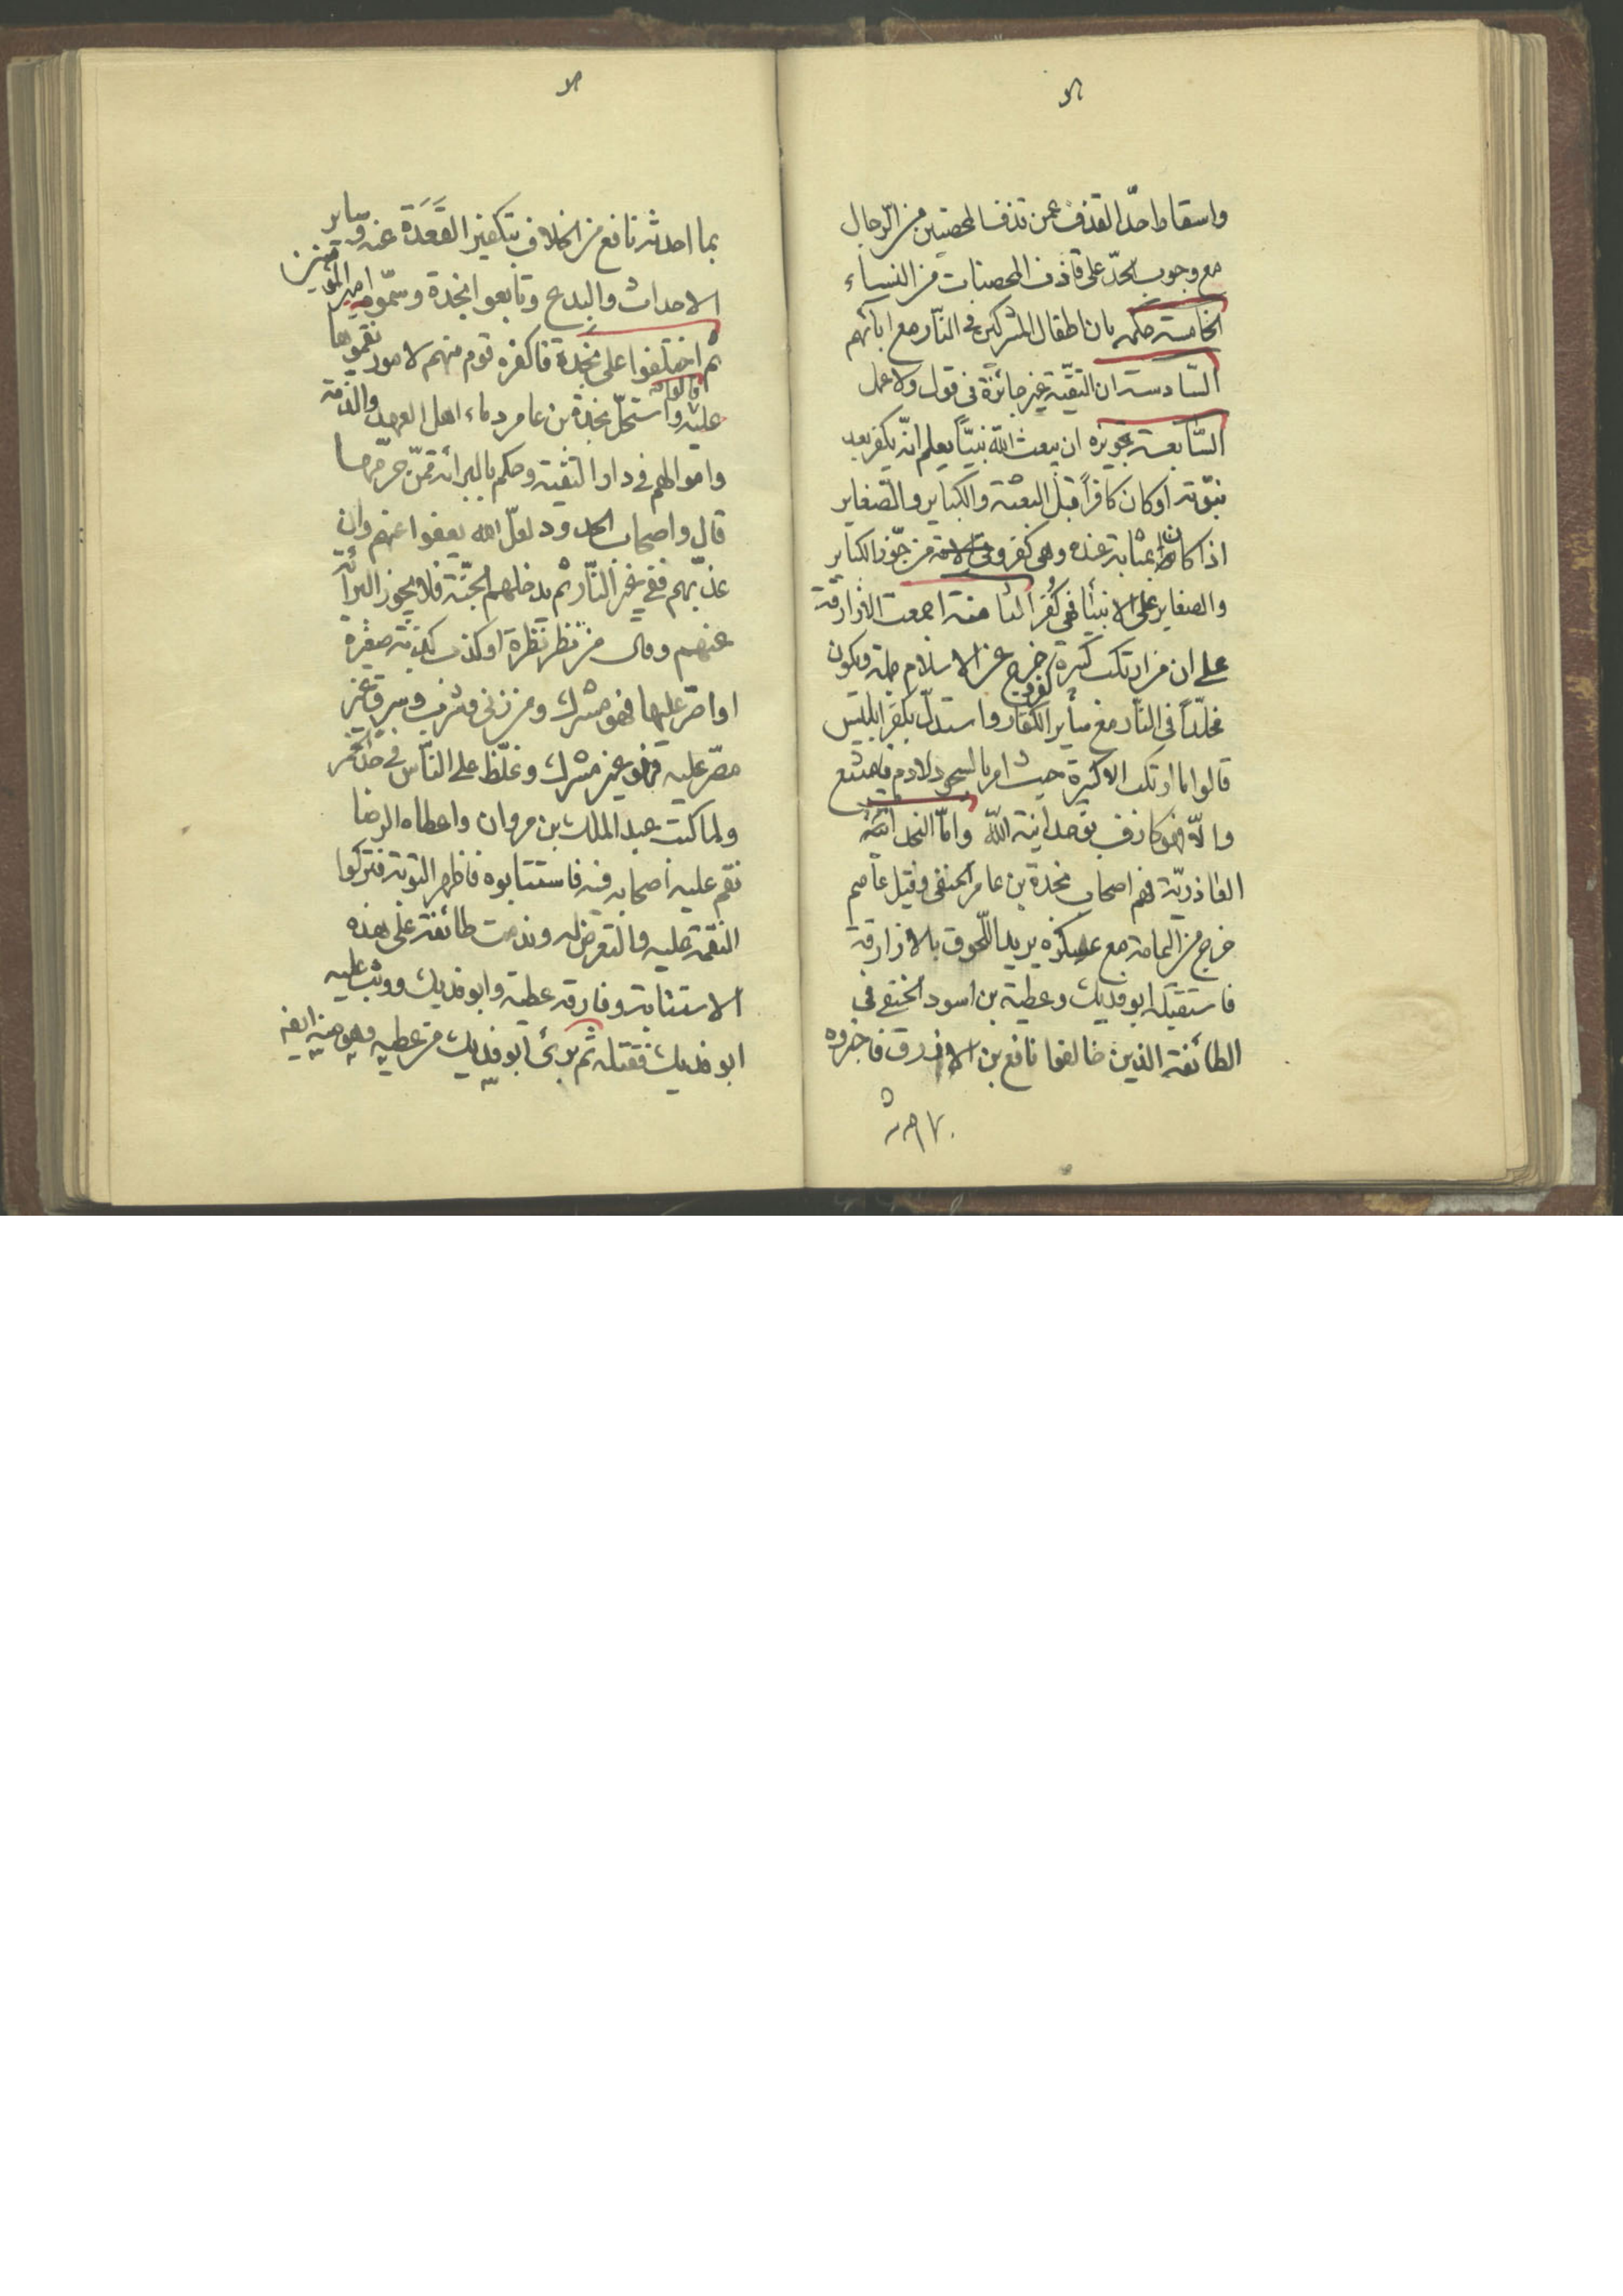 واسقاط حدّ القذف عمن قذف المحصنين من الرّجال
مع وجوب الحدّ على قاذف المحصنات من النساء
الخامسة حكمه بان اطفال المشركين في النّار مع ابائهم
السّادسة ان التقيّة غير جائزة في قول ولا عمل
السّابعة تجويزه ان يبعث الله نبيّاً يعلم انّه يكفر بعد
نبوّته او كان كافراً قبل البعثة والكباير والصغاير
اذا كان بمثابة عنده وهى كفر وفي الامة من جوّز الكباير
والصغاير على الانبيا فهى كُفر الثامنة اجمعت الازارقة
على ان من ارتكب كبيرة كفر وخرج عن الاسلام جملة ويكون
مخلّداً في النّار مع سائر الكفار واستدلّ بكفر ابليس
قالوا ما ارتكب الا كبيرة حيث امر بالسجود لادم فامتنع
والاّ فهو عارف بوحدانية الله وامّا النجدات
العاذريّة فهم اصحاب نجدة بن عامر الحنفى وقيل عاصم
خرج من اليمامة مع عسكره يريد اللّحوق بالازارقة
فاستقبله ابو فديك وعطية بن اسود الحنفى في
الطائفة الذين خالفوا نافع بن الازرق فاخبروه
بما احدثه نافع من الخلاف بتكفير القَعَدَة عنه وساير
الاحداث والبدع وتابعوا نجدة وسمّوه امير المؤمنين
ثم اختلفوا على نجدة فاكفره قوم منهم لامور نقموها
عليه واستحلّ نجدة بن عامر دماء اهل العهد والذمة
واموالهم في دار التقية وحكم بالبرائة ممّن حرّمها
قال واصحاب الحدود لعلّ الله يعفوا عنهم وان
عذبهم ففي غير النّار ثم يدخلهم الجنّة فلا يجوز البرائة
عنهم وقال من نظر نظرة او كذب كذبة صغيرة
او اصرّ عليها فهو مشرك ومن زنى وشرب وسرق غير
مصرّ عليه فهو غير مشرك وغلّظ على النّاس في حدّ الخمر
ولما كتب عبد الملك بن مروان واعطاه الرضا
نقم عليه اصحابه فيه فاستتابوه فاظهر التوبة فتركوا
النقمة عليه والتعرض له وندمت طائفة على هذه
الاستتابة وفارقه عطية وابو فديك ووثب عليه
ابو فديك فقتله ثم برئ ابو فديك من عطيه وهو منه ايضا